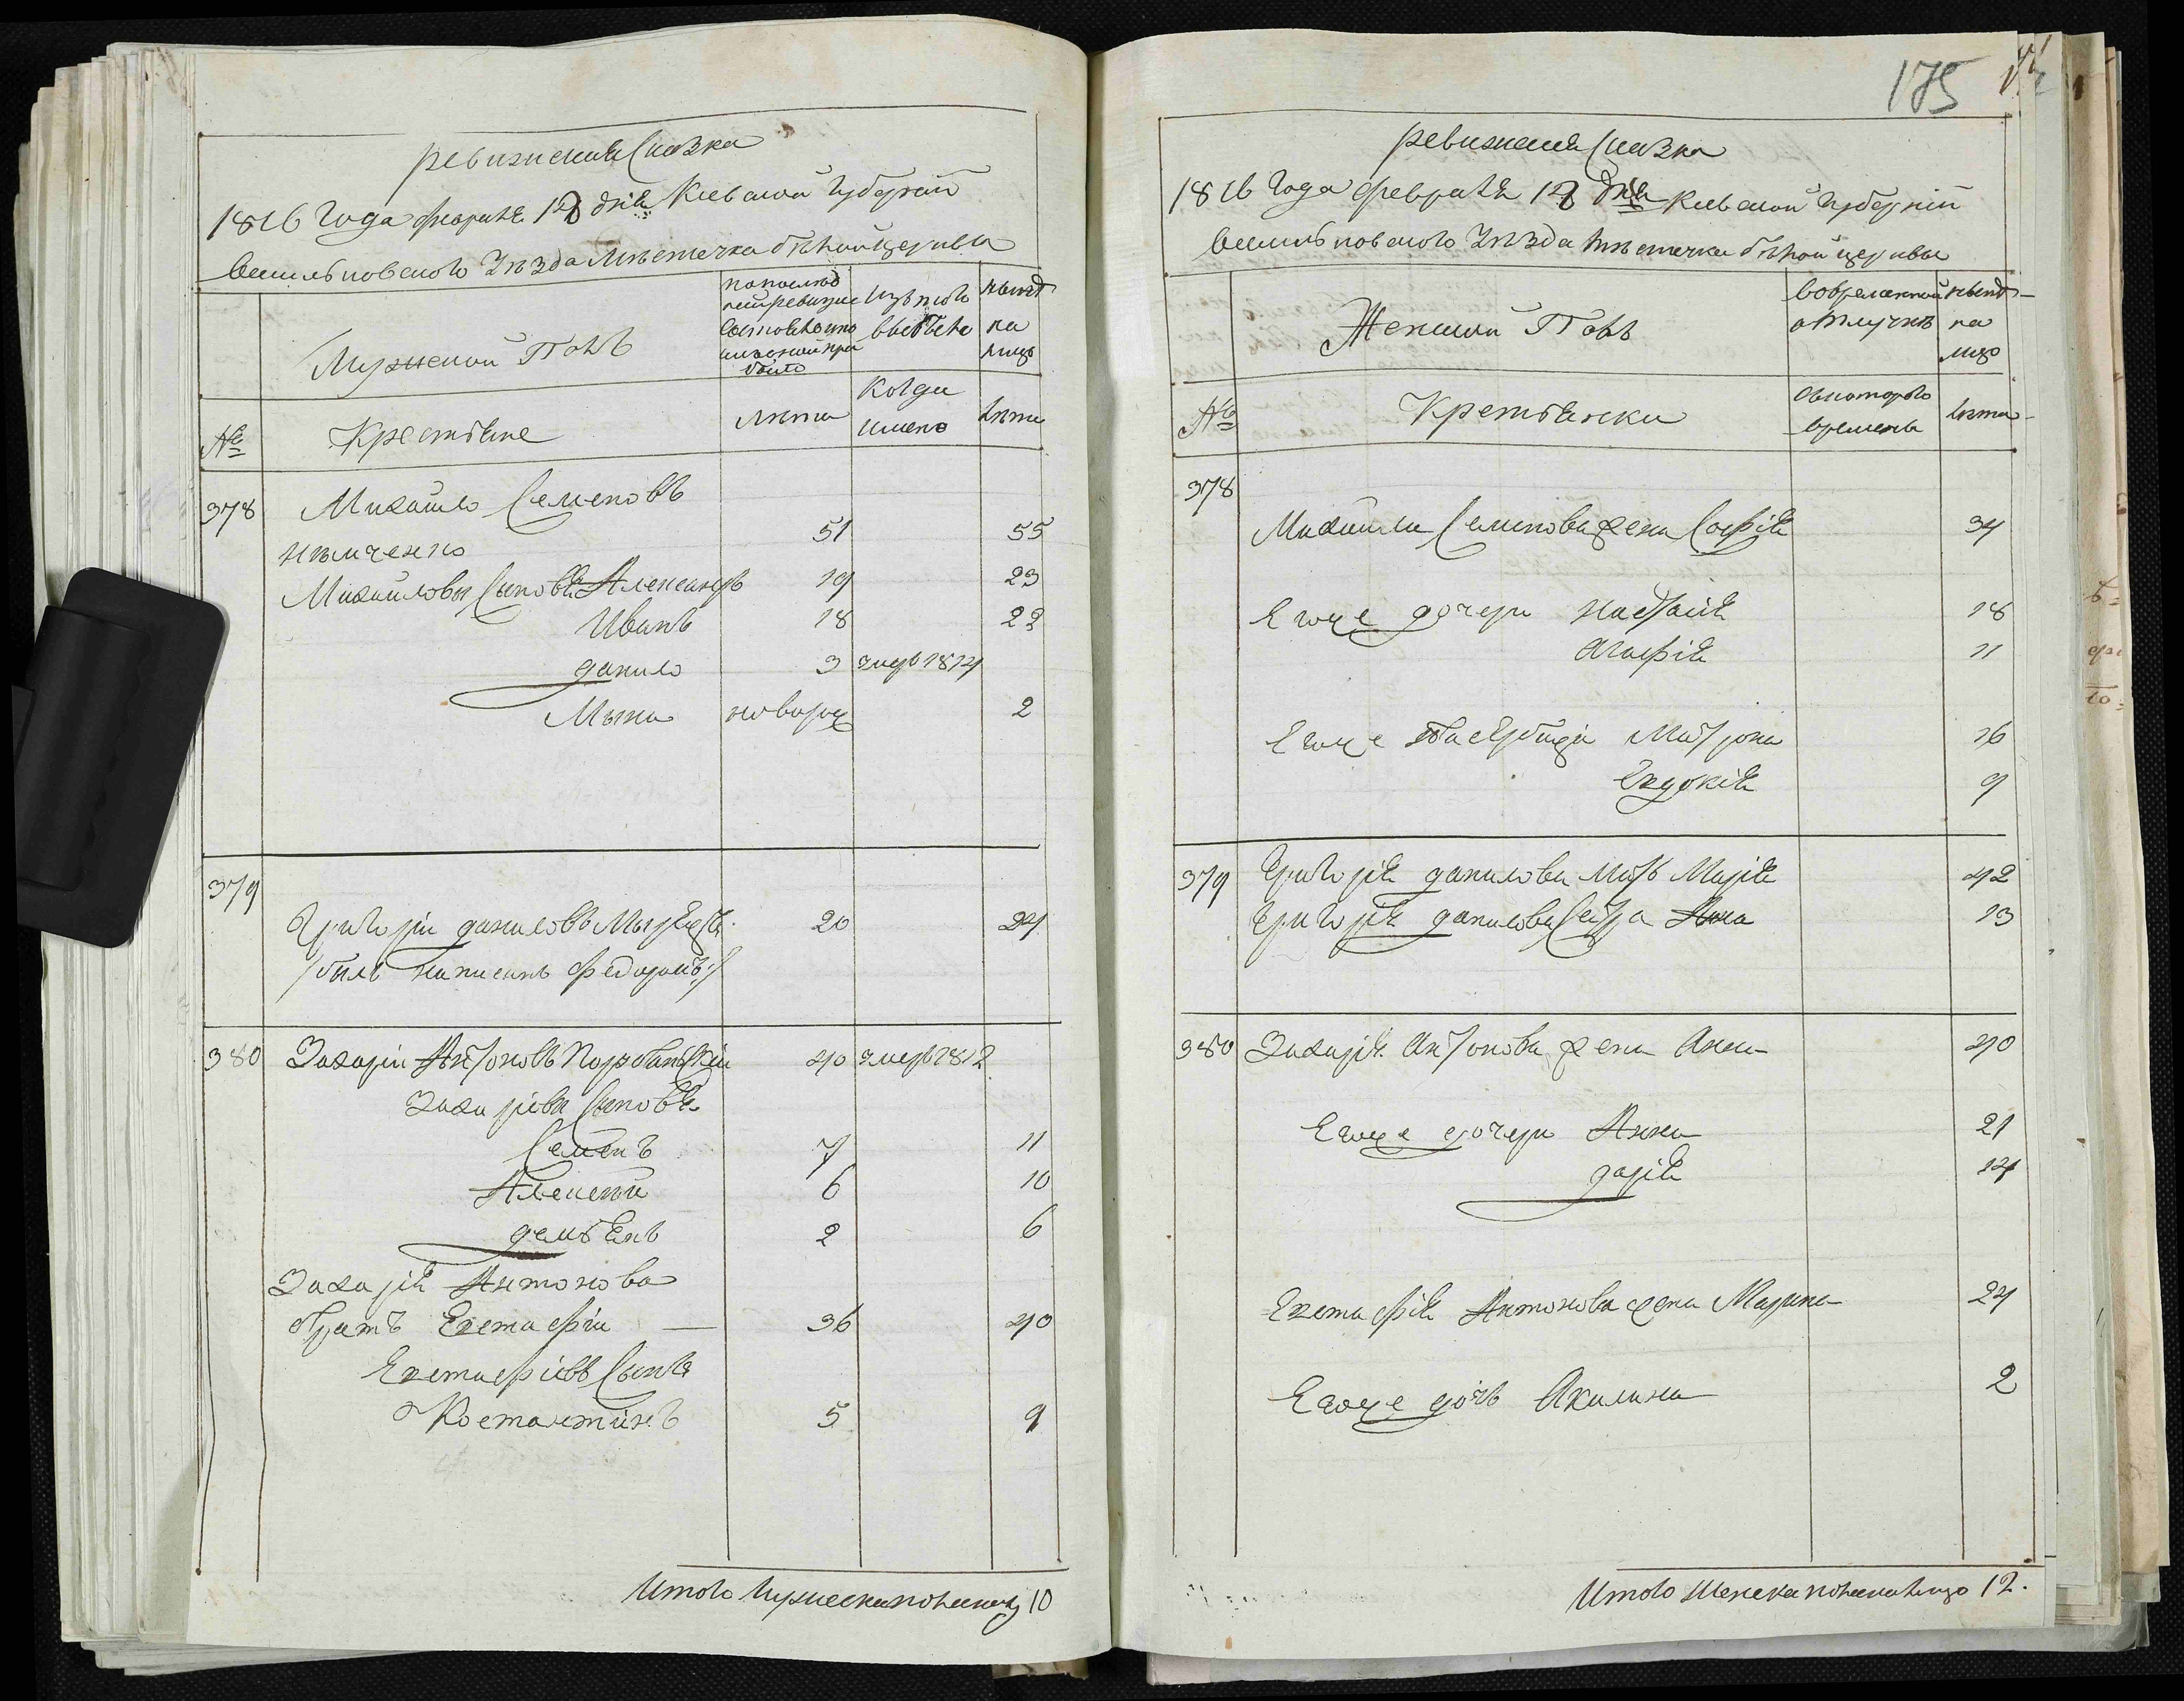 ревизская Сказка
1816 Года февраля 18 дня Киевской Губернии
васильковского Уезда Местечка белойцеркви
Мужеской Полъ
попослед
ней ревизии
состояло и
после оной при
было
Изъ того
выбыло
ныне
на
лицо
№
Крестьяне
Лета
Когда
имено
лета
378
Михайло Семеновъ
Немченко 51 55
Михайловы Сыновья Александръ 19 23
Иванъ 18 22
данило 3 умеръ 1814
Мина новорож 2
379
Григорий даниловъ 20 24
/былъ написанъ федоромъ/
380 Захарии Антоновъ 40 умеръ 1812
Захариевы Сыновья
Семенъ 7 11
Алексей 6 10
демьянъ 2 6
Захария Антонова
братъ Евстафии 36 40
Евстафиевъ Сынъ
Костантинъ 5 9
Итого мужеска пола наличо 10
175
ревизская Сказка
1816 Года февраля 18 дня Киевской Губернии
васильковского Уезда местечка белой церкви
Женской Полъ
вовременной
отлучке
ныне
на
лицо
№
Крестьянки
Скоторого
времени
лета
378
Михайла Семенова жена Софія 34
Егоже дочери Настасія 18
Агафія 11
Егоже Падчерицы Матрона 16
Евдокія 9
379 Григорія данилова мать Марія 42
Григорія данилова Сестра Анна 13
380 Захарія Антонова жена Анна 40
Егоже дочери Анна 21
дарія 14
Евстафія Антонова жена Марина 24
Егоже дочь Акилина 2
Итого женска пола налицо 12.